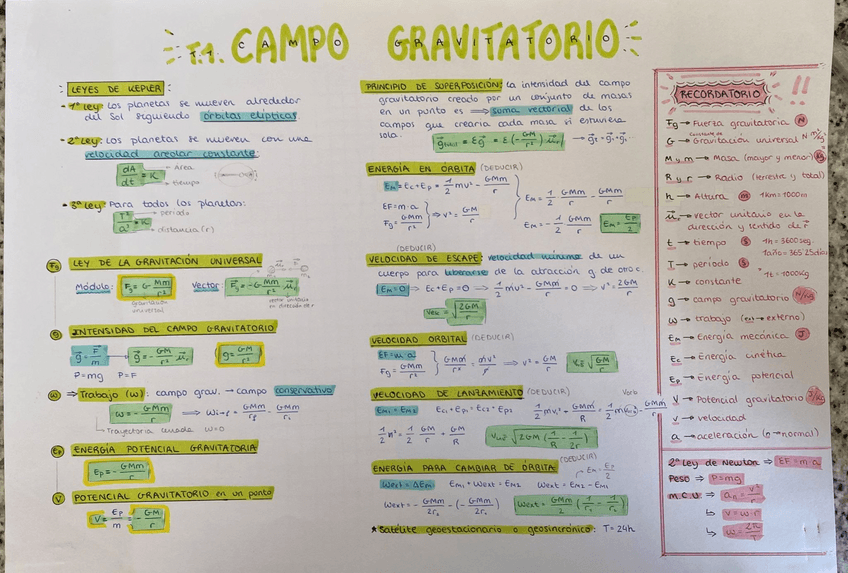 T.1. CAMPO GRAVITATORIO
CAMPO GRAVITATORIO
LEYES DE KEPLER
1ª ley: Los planetas se mueven alrededor
del Sol siguiendo órbitas elípticas
2ª Ley: Los planetas se mueven con una
velocidad areolar constante:
dA/dt = K → Área
→ tiempo
3ª ley: Para todos los planetas:
T²/a³ = K → periodo
→ distancia (r)
Fg LEY DE LA GRAVITACIÓN UNIVERSAL
Módulo: Fg = G Mm/r² Vector: Fg = -G Mm/r² ur
Gravitación
universal
vector unitario
en dirección de r
g INTENSIDAD DEL CAMPO GRAVITATORIO
g = F/m → g = -GM/r² ur g = GM/r²
P=mg P=F
W ⇒ Trabajo (W): campo grav. → campo conservativo
W = -GMm/r ⇒
Trayectoria cerrada W=0
Ep ENERGÍA POTENCIAL GRAVITATORIA
Ep = -GMm/r
V POTENCIAL GRAVITATORIO en un punto
V = Ep/m = -GM/r
PRINCIPIO DE SUPERPOSICIÓN: la intensidad del campo
gravitatorio creado por un conjunto de masas
en un punto es ⇒ suma vectorial de los
campos que crearía cada masa si estuviera
sola.
ENERGÍA EN ÓRBITA (DEDUCIR)
Em = Ec + Ep = 1/2 mv² - GMm/r
ΣF=m·a
Fg = GMm/r² ⇒ v² = GM/r
Em = 1/2 GMm/r - GMm/r
Em = -1/2 GMm/r Em = Ep/2
(DEDUCIR)
VELOCIDAD DE ESCAPE: velocidad mínima de un
cuerpo para liberarse de la atracción g de otro c.
Em=0 ⇒ Ec+Ep=0 → 1/2 mv² - GMm/r = 0 ⇒ v² = 2GM/r
√2GM/r
VELOCIDAD ORBITAL (DEDUCIR)
ΣF=m·a
Fg = GMm/r² GMm/r² = mv²/r ⇒ v² = GM/r √GM/r
VELOCIDAD DE LANZAMIENTO (DEDUCIR)
Em1 = Em2 Ec1+Ep1 = Ec2+Ep2
√2GM (1/R - 1/2r)
ENERGÍA PARA CAMBIAR DE ÓRBITA (DEDUCIR)
Em = Ep/2
Wext = ΔEm Em1 + Wext = Em2 Wext = Em2 - Em1
Wext = -GMm/2r2 - (-GMm/2r1) Wext = GMm/2 (1/r1 - 1/r2)
★ Satélite geoestacionario o geosincrónico: T=24h
RECORDATORIO
!!
Fg → Fuerza gravitatoria N
G → Constante de Gravitación universal
M y m → Masa (mayor y menor) Kg
R y r → Radio (terrestre y total)
h → Altura m 1km=1000m
ur → vector unitario en la
dirección y sentido de r
t → tiempo S 1h=3600seg
T → periodo S
1t=1000Kg
K → constante
g → campo gravitatorio N/Kg
W → trabajo (ext → externo)
Em → Energía mecánica J
Ec → Energía cinética
Ep → Energía potencial
V → Potencial gravitatorio J/Kg
v → velocidad
a → aceleración (n → normal)
2ª Ley de Newton ⇒ ΣF=m·a
Peso ⇒ P=mg
M.C.U ⇒ an = v²/r
↳ v=w·r
↳ w=2π/T